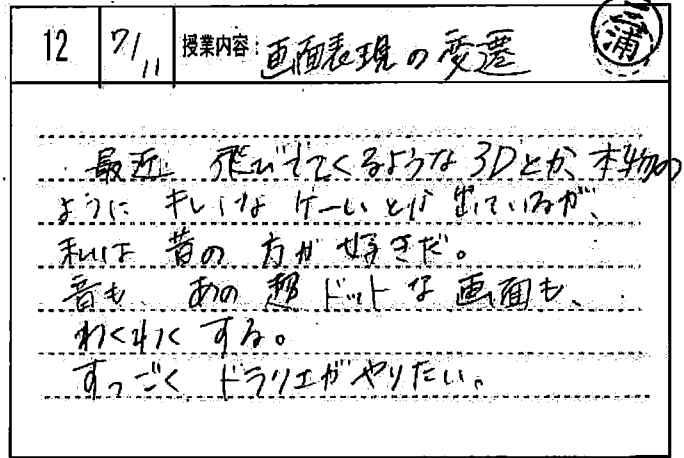 12 7/11 授業内容: 画面表現の変遷 三浦
最近 飛びでてくるような 3Dとか、本物の
ように キレイな ゲームとか 出ているが、
私は 昔の 方が 好きだ。
音も、あの 超 ドットな 画面も、
わくわく する。
すっごく ドラクエが やりたい。